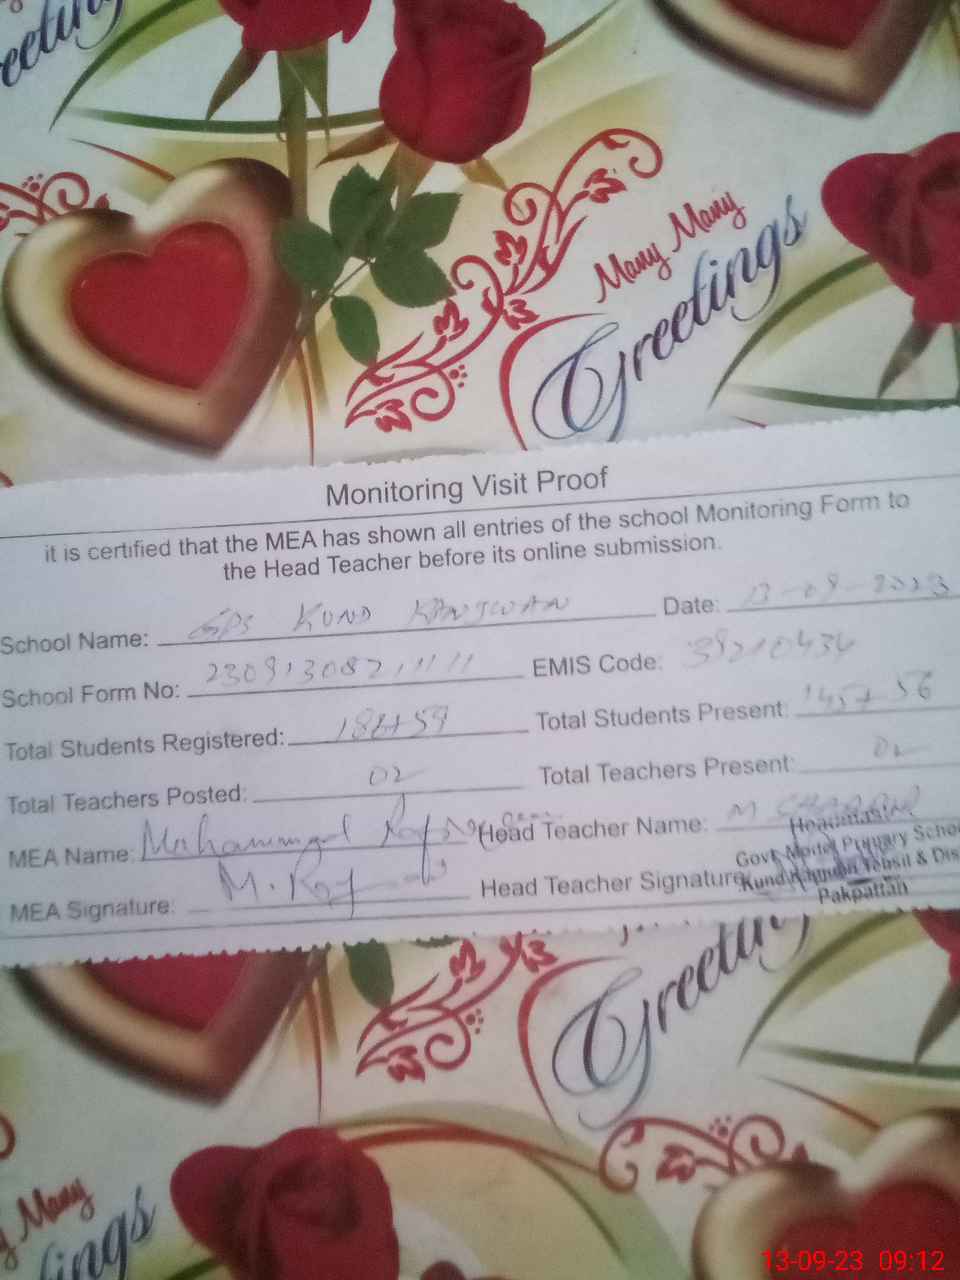 reeting
Many Many
Greetings
Monitoring Visit Proof
it is certified that the MEA has shown all entries of the school Monitoring Form to
the Head Teacher before its online submission.
School Name: GPS KUND Date: 13-09-2023
School Form No: EMIS Code: 39210434
Total Students Registered: 188+59 Total Students Present: 145+56
Total Teachers Posted: 02 Total Teachers Present: 02
MEA Name: Muhammad Head Teacher Name: M
MEA Signature: M. Head Teacher Signature
Headmaster
Govt. Model Primary Schoo
Kund Tehsil & Dis
Pakpattan
Greetin
Many
ings
13-09-23 09:12